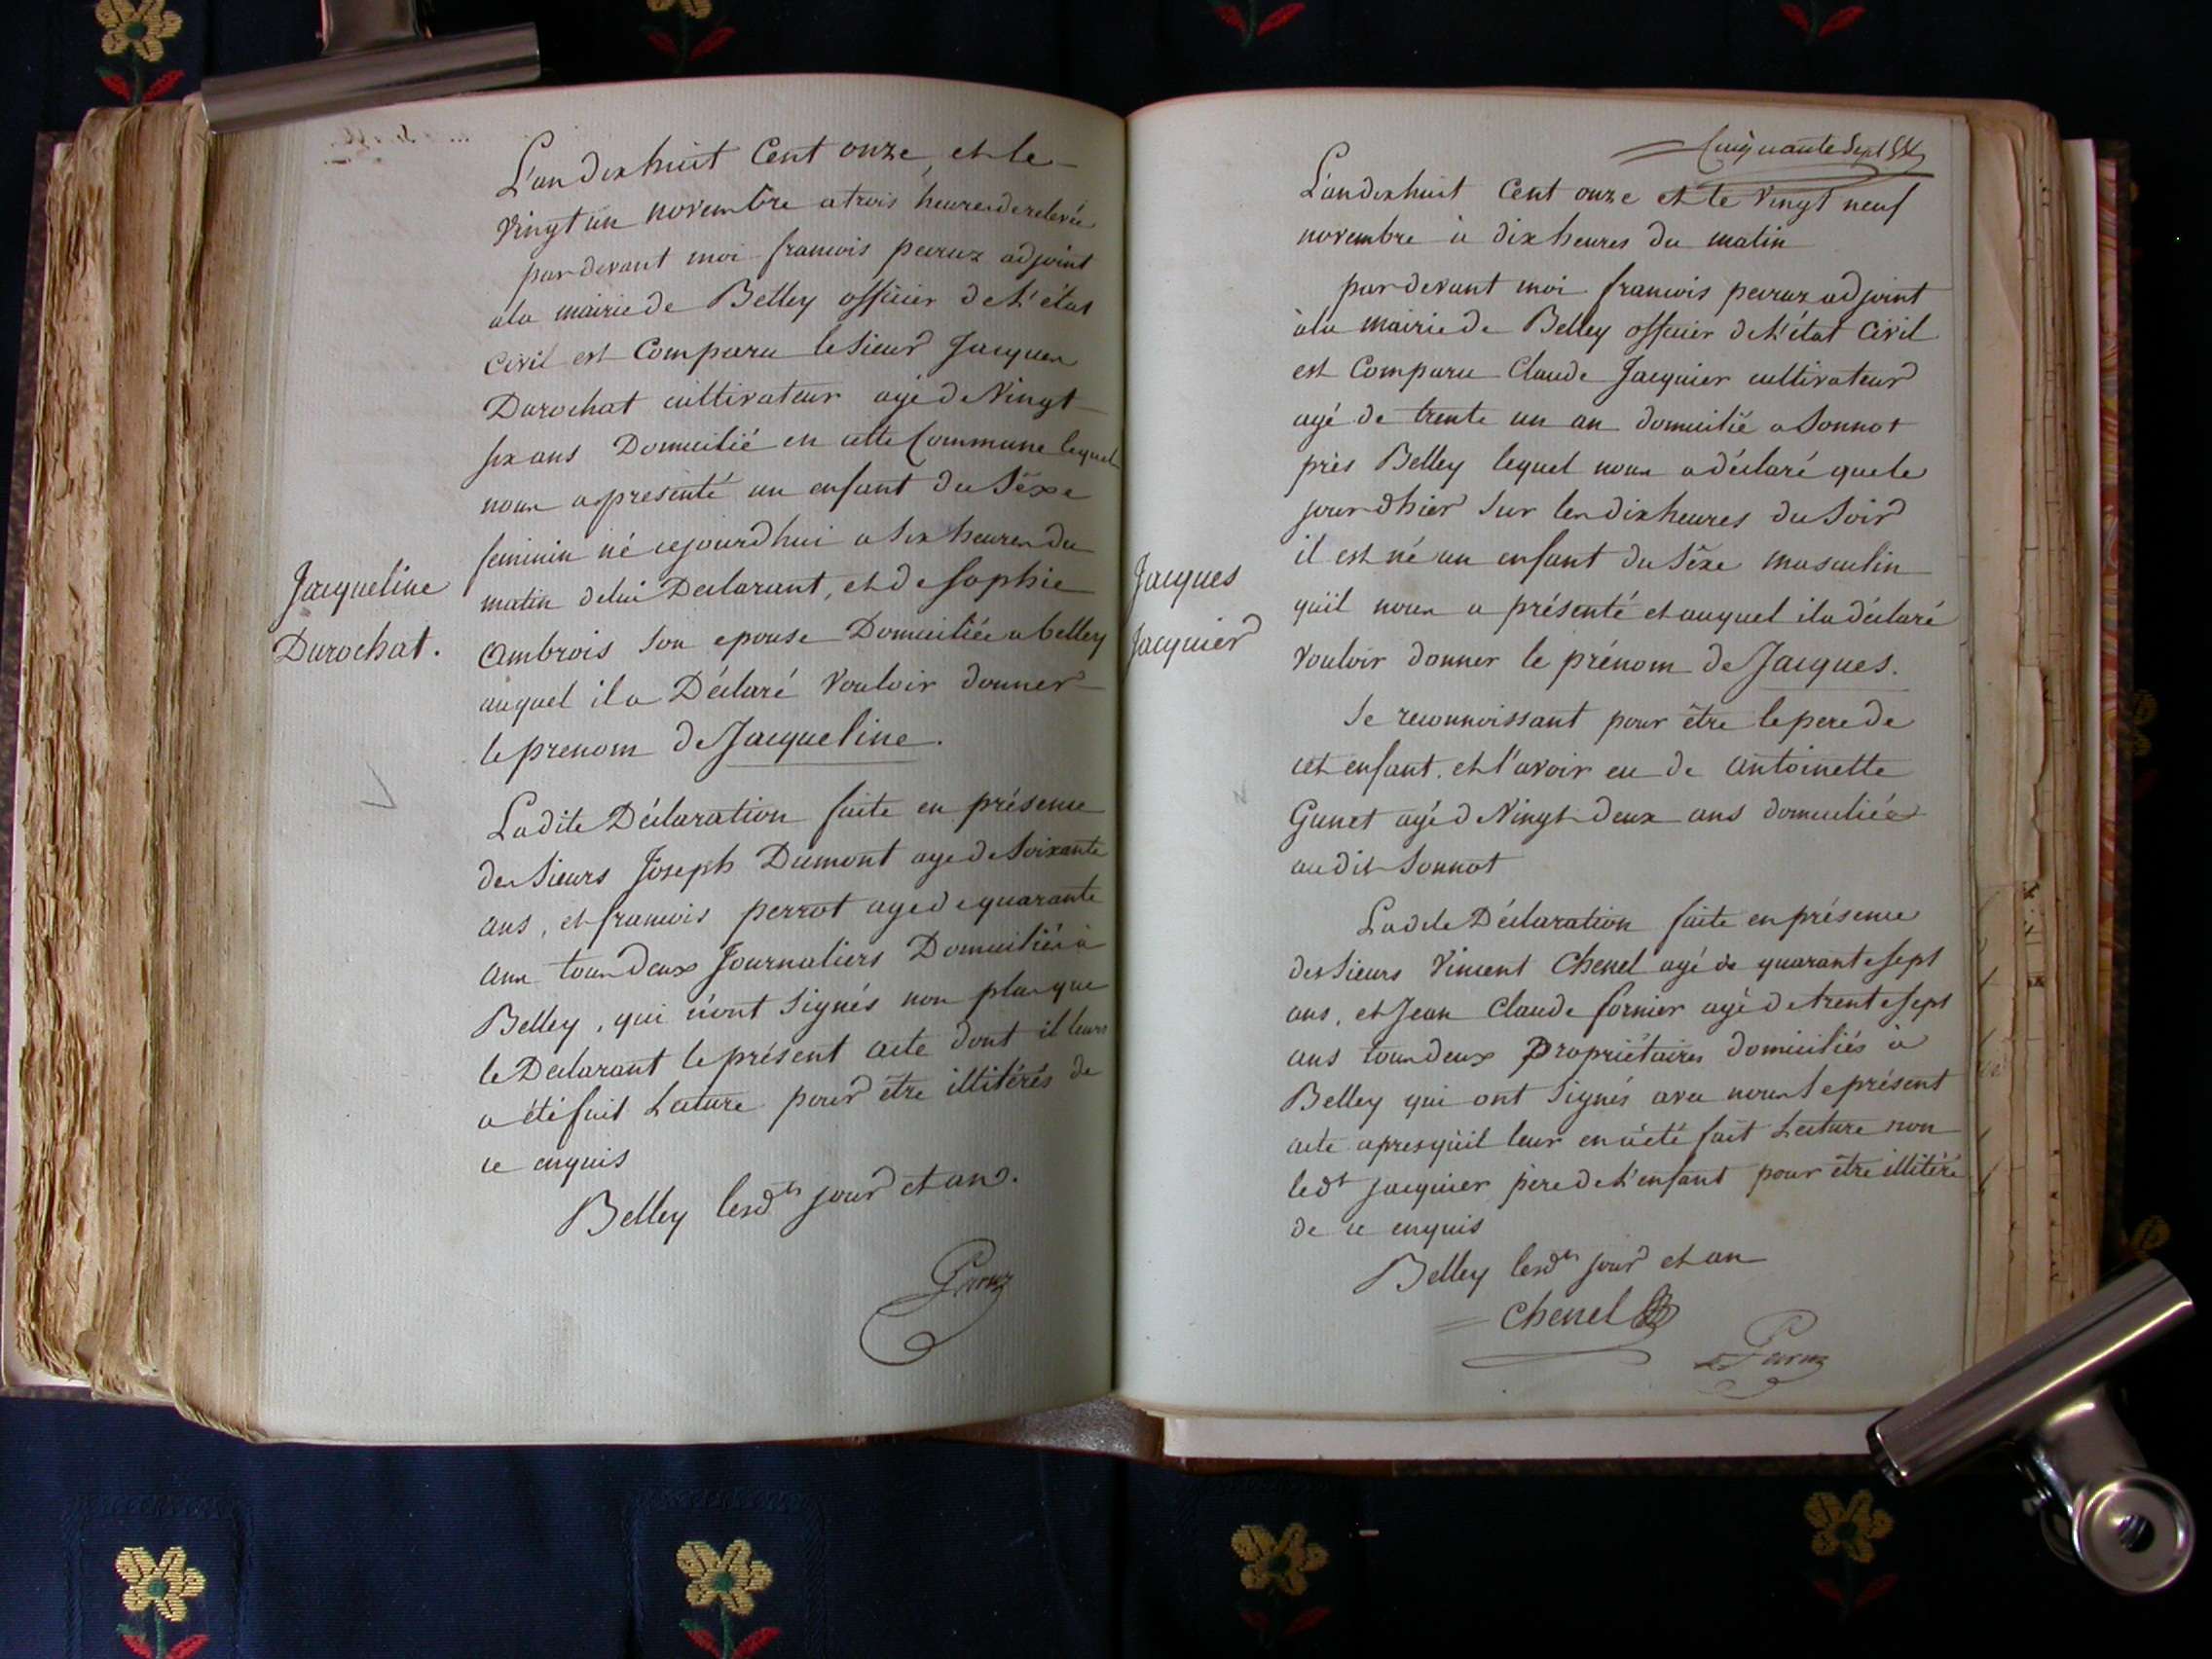 L'an dix huit Cent onze, et le
Vingt un novembre a trois heures de relevée
par devant moi francois peiruz adjoint
à la mairie de Belley officier de L'état
Civil est Comparu le Sieur Jacques
Durochat cultivateur agé de Vingt
six ans Domicilié en cette Commune lequel
nous a presenté un enfant du Séxe
feminin né cejourdhui a six heures du
matin de lui Declarant, et de Sophie
Ambrois son epouse Domiciliée a belley
auquel il a Déclaré Vouloir donner
le prenom de Jacqueline.
Jacqueline
Durochat.
Ladite Déclaration faite en présence
des Sieurs Joseph Dumont age de Soixante
ans, et francois perrot age de quarante
ans tous deux Journaliers Domiciliés à
Belley, qui n'ont Signés non plus que
le Declarant le présent acte dont il leurs
a été fait Lecture pour être illitérés de
ce enquis
Belley lesdts jour et an.
Jacques
Jacquier
Cinquante Sept
L'an dix huit Cent onze et le Vingt neuf
novembre à dix heures du matin
par devant moi francois peiruz adjoint
à la mairie de Belley officier de L'état Civil
est Comparu Claude Jacquier cultivateur
agé de trente un an domicilié a Sonnot
près Belley lequel nous a déclaré que le
jour d'hier Sur les dix heures du Soir
il est né un enfant du Séxe masculin
qu'il nous a présenté et auquel il a déclaré
Vouloir donner le prénom de Jacques.
Se reconnoissant pour être le pere de
cet enfant. et l'avoir eu de Antoinette
Gunet agé de Vingt deux ans domiciliée
au dit Sonnot
Ladite Déclaration faite en présence
des Sieurs Vincent Chenel agé de quarante sept
ans, et Jean Claude fornier agé de trente sept
ans tous deux Propriétaires domiciliés à
Belley qui ont Signés avec nous le présent
acte apres qu'il leur en a été fait Lecture non
ledt jacquier père de L'enfant pour être illitéré
de ce enquis
Belley lesdts jour et an
Chenel